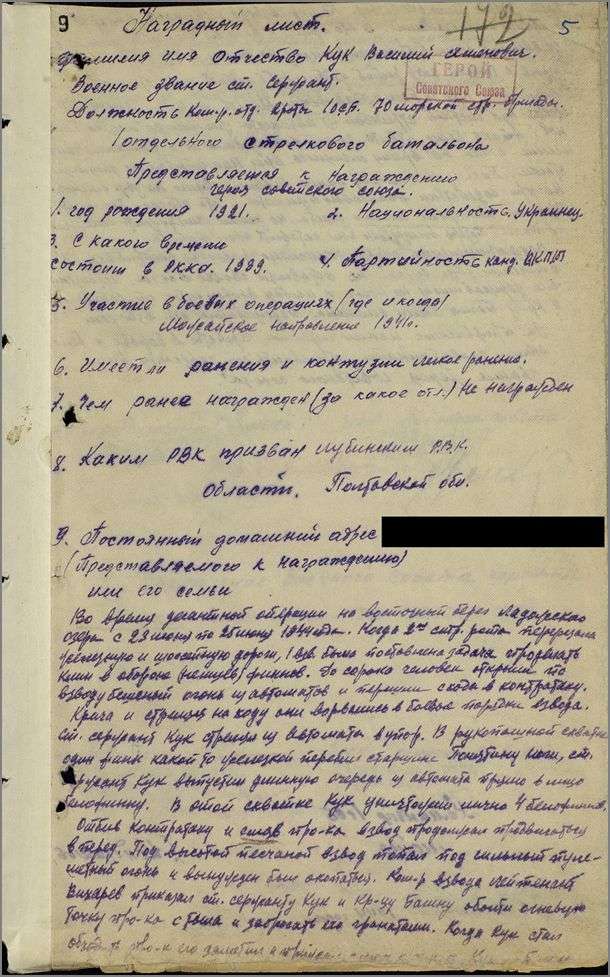 9
Наградный лист.
172
5
Фамилия имя Отчество Кук Василий Семенович.
ГЕРОЙ
Советского Союза
Военное звание ст. сержант.
Должность Ком-р. отд. роты 1осп. 70 морской стр. бригады.
1 отдельного стрелкового батальона
Представляется к награждению
героя советского союза.
1. год рождения 1921.
2. Национальность. Украинец
3. С какого времени
состоит в РККА. 1939.
4. Партийность канд. ВКП/б/
5. Участие в боевых операциях (где и когда)
направление 1941г.
6. Имеет ли ранения и контузии легкое ранение.
7. Чем ранее награжден (за какое отл.) Не награжден
8. Каким РВК призван Лубинским Р.В.К.
Области. Полтавской обл.
9. Постоянный домашний адрес
(Представляемого к награждению)
или его семьи
Во время десантной операции на восточный берег Ладожского
озера с 23 июня по 25 июня 1944 года. Когда 2ая стр. рота перерезала
железную и шоссейную дороги, 1 взв. была поставлена задача прорвать
клин в оборону финнов. До сорока человек открыли по
взводу бешеный огонь из автоматов и перешли сходу в контратаку.
Крича и стреляя на ходу они ворвались в боевые порядки взвода.
Ст. сержант Кук стрелял из автомата в упор. В рукопашной схватке
один финн какой то железкой перебил старшине ноги, ст.
сержант Кук выпустил длинную очередь из автомата прямо в лицо
белофинну. В этой схватке Кук уничтожил лично 4 белофиннов.
Отбив контратаку и смяв про-ка взвод продолжал продвигаться
вперед. Под высотой песчаной взвод попал под сильный пуле-
метный огонь и вынужден был окопаться. Ком-р взвода лейтенант
Вихарев приказал ст. сержанту Кук и кр-цу обойти огневую
точку про-ка с тыла и забросать его гранатами. Когда Кук стал
про-к его заметил и